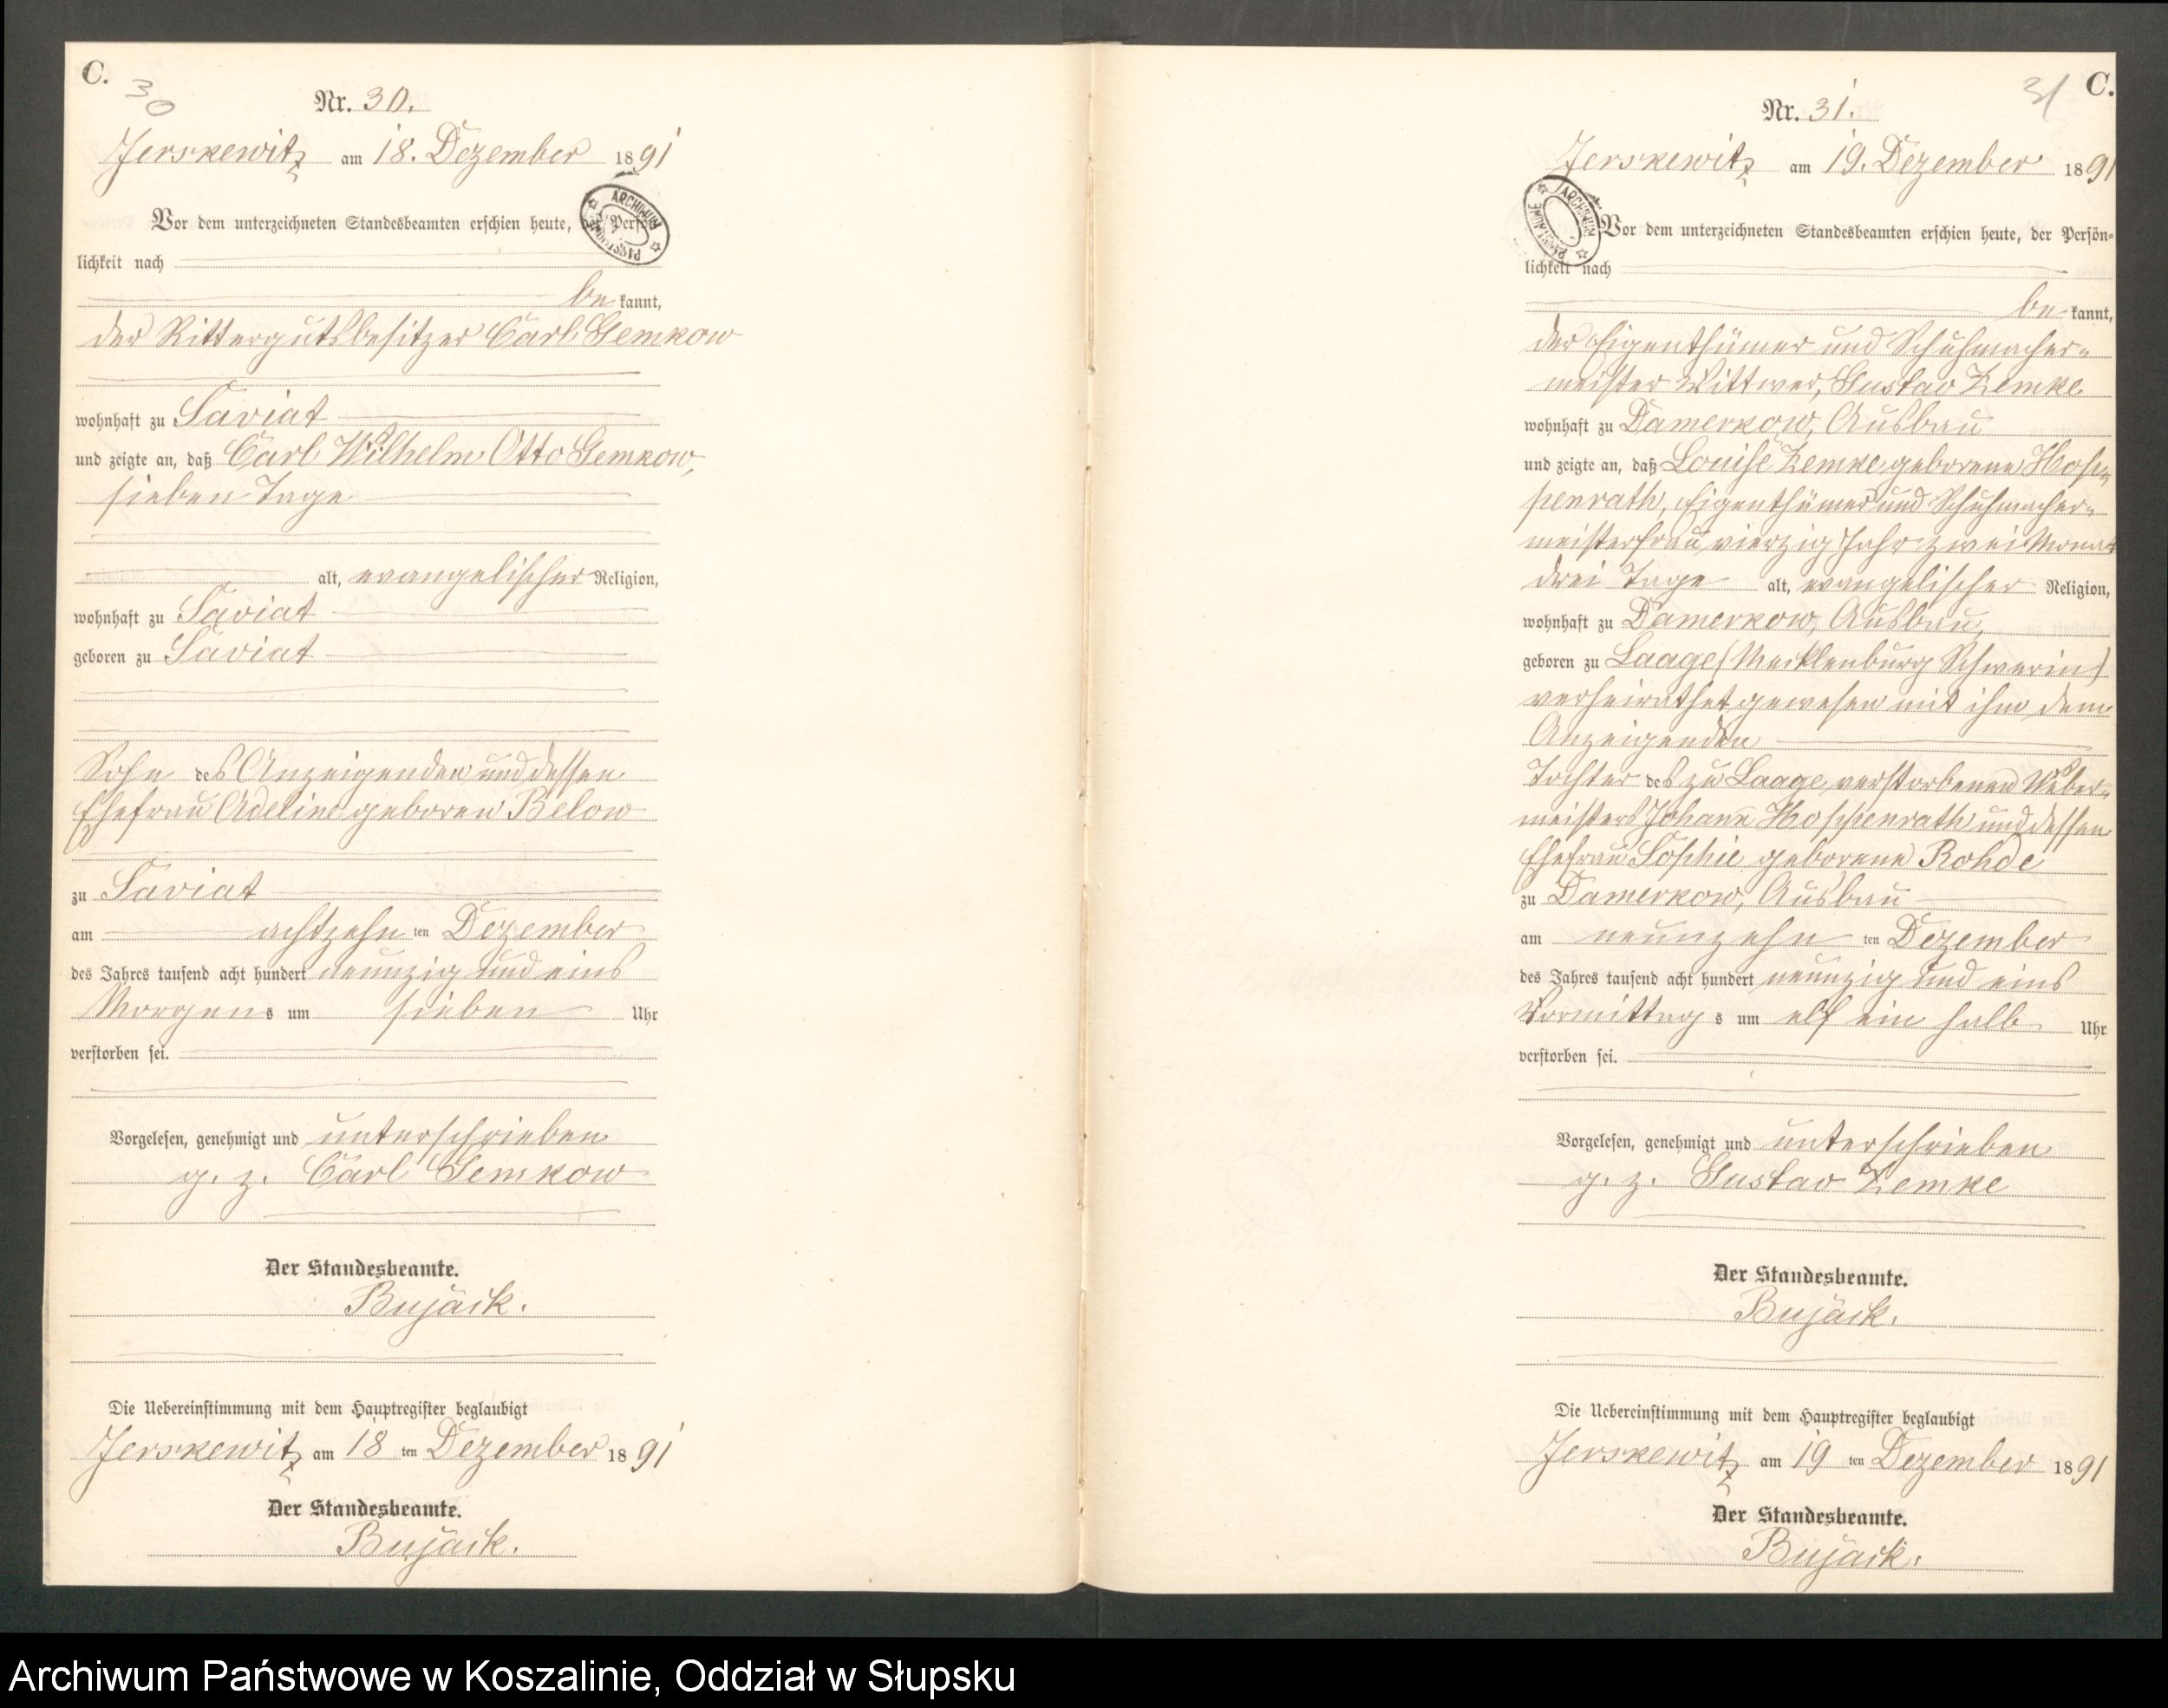 C.
30
Nr. 30.
Jerskewitz am 18. Dezember 1891
Vor dem unterzeichneten Standesbeamten erschien heute, der Persön-
lichkeit nach
be kannt,
der Rittergutsbesitzer Carl Gemkow
wohnhaft zu Saviat
und zeigte an, daß Carl Wilhelm Otto Gemkow,
sieben Tage
alt, evangelischer Religion,
wohnhaft zu Saviat
geboren zu Saviat
Sohn des Anzeigenden und dessen
Ehefrau Adeline geboren Below
zu Saviat
am achtzehn ten Dezember
des Jahres tausend acht hundert neunzig und eins
Morgens um sieben Uhr
verstorben sei.
Vorgelesen, genehmigt und unterschrieben
g. z. Carl Gemkow
Der Standesbeamte.
Bujack.
Die Uebereinstimmung mit dem Hauptregister beglaubigt
Jerskewitz am 18 ten Dezember 1891
Der Standesbeamte.
Bujack.
ARCHIWUM PAŃSTWOWE
31 C.
Nr. 31.
Jerskewitz am 19. Dezember 1891
Vor dem unterzeichneten Standesbeamten erschien heute, der Persön-
lichkeit nach
be kannt,
der Eigenthümer und Schuhmacher-
meister Wittwer, Gustav Zemke
wohnhaft zu Damerkow, Ausbau
und zeigte an, daß Louise Zemke geborene Hop-
penrath, Eigenthümer und Schuhmacher-
meisterfrau, vierzig Jahr zwei Monat
drei Tage alt, evangelischer Religion,
wohnhaft zu Damerkow, Ausbau,
geboren zu Laage (Mecklenburg Schwerin)
verheirathet gewesen mit ihm dem
Anzeigenden
Tochter des zu Laage verstorbenen Weber-
meisters Johann Hoppenrath und dessen
Ehefrau Sophie geborene Rohde
zu Damerkow, Ausbau
am neunzehn ten Dezember
des Jahres tausend acht hundert neunzig und eins
Vormittags um elf ein halb Uhr
verstorben sei.
Vorgelesen, genehmigt und unterschrieben
g. z. Gustav Zemke
Der Standesbeamte.
Bujack.
Die Uebereinstimmung mit dem Hauptregister beglaubigt
Jerskewitz am 19 ten Dezember 1891
Der Standesbeamte.
Bujack.
ARCHIWUM PAŃSTWOWE
Archiwum Państwowe w Koszalinie, Oddział w Słupsku